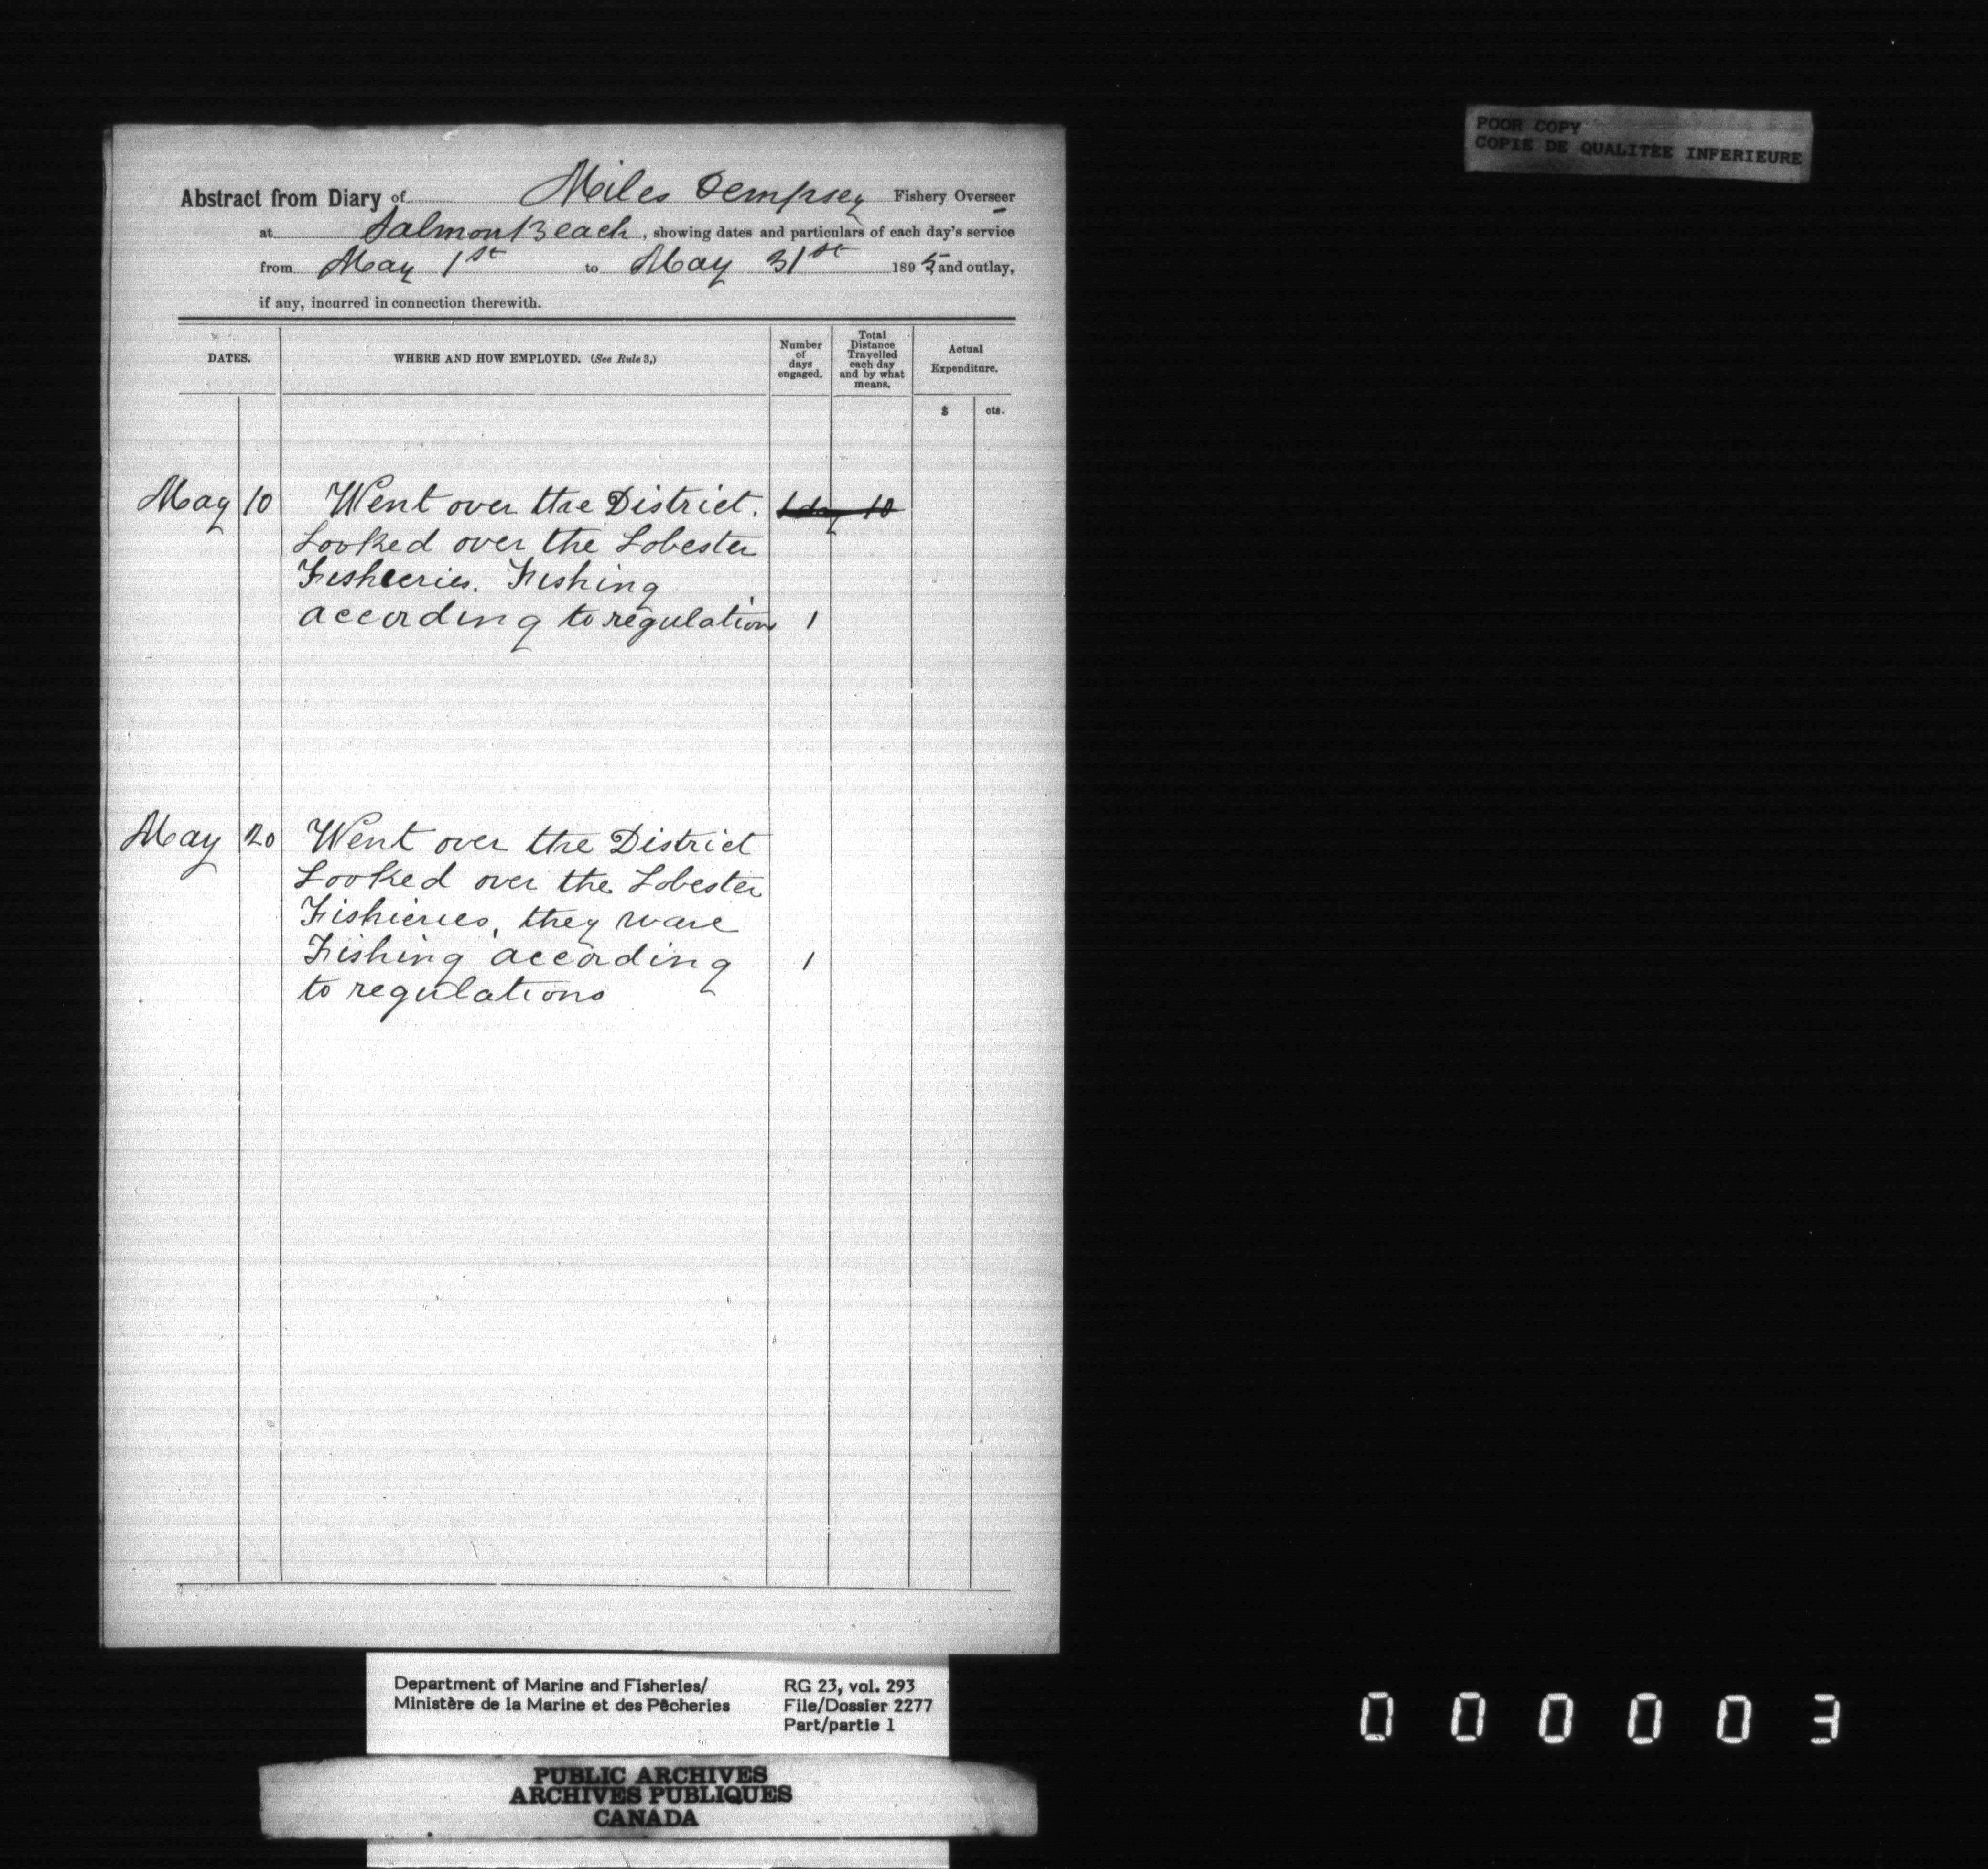 POOR COPY
COPIE DE QUALITEE INFERIEURE
Abstract from Diary of Miles Dempsey Fishery Overseer
at Salmon Beach, showing dates and particulars of each day's service
from May 1st to May 31st 1895 and outlay,
if any, incurred in connection therewith.
DATES.
WHERE AND HOW EMPLOYED. (See Rule 3,)
Number of days engaged.
Total Distance Travelled each day and by what means.
Actual Expenditure.
$ cts.
May 10 Went over the District. 1 day 10
Looked over the Lobester
Fisheeries. Fishing
according to regulations 1
May 20 Went over the District
Looked over the Lobester
Fishieries, they ware
Fishing according 1
to regulations
Department of Marine and Fisheries/ RG 23, vol. 293
Ministère de la Marine et des Pêcheries File/Dossier 2277
Part/partie 1
PUBLIC ARCHIVES
ARCHIVES PUBLIQUES
CANADA
000003